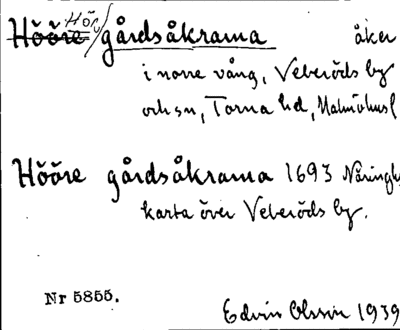 Höö/gårdsåkrarna åker
i norre vång, Veberöds by
och sn, Torna hd, Malmöhusl
Hööre gårdsåkrarna 1693
karta över Veberöds by.
Nr 5855.
Edvin Olsson 1939